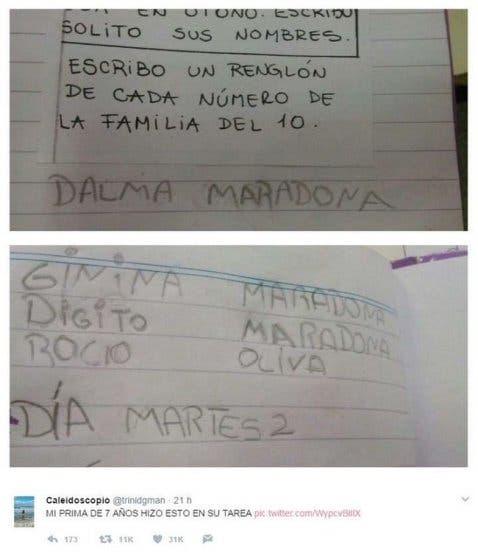 EN OTOÑO. ESCRIBO
SOLITO SUS NOMBRES.
ESCRIBO UN RENGLÓN
DE CADA NÚMERO DE
LA FAMILIA DEL 10.
DALMA MARADONA
GININA MARADONA
DIGITO MARADONA
ROCIO OLIVA
DÍA MARTES 2
Caleidoscopio @trinidgman · 21 h
MI PRIMA DE 7 AÑOS HIZO ESTO EN SU TAREA pic.twitter.com/WypcvBIllX
173 11K 31K